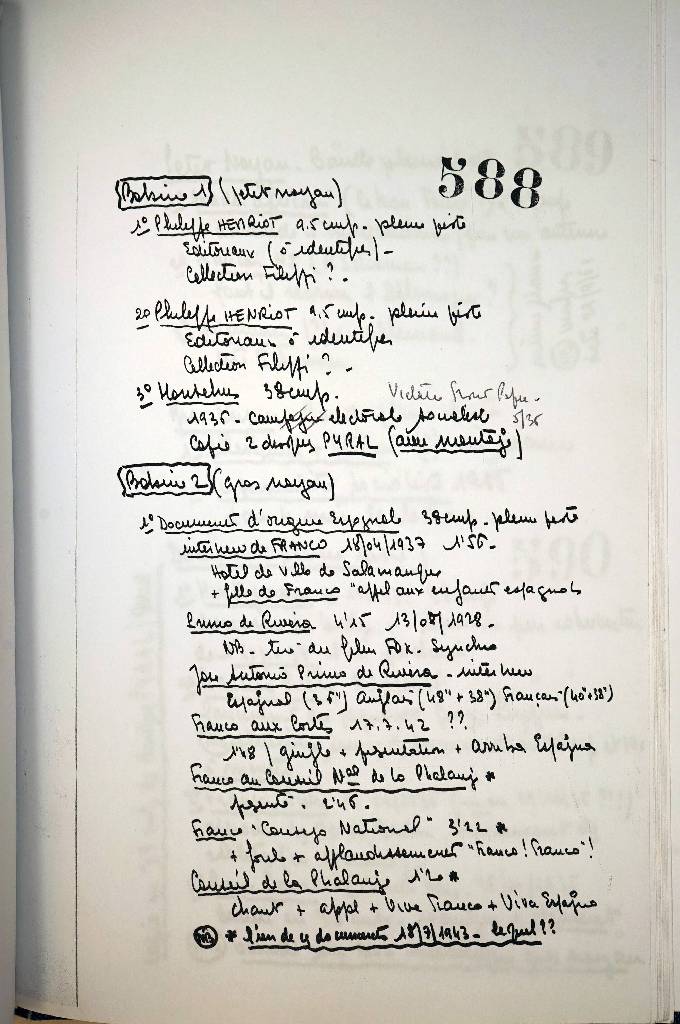 588
Bobine 1 (petit noyau)
1º Philippe HENRIOT 9.5 cm/s - pleine piste
Editoriaux (à identifier) -
Collection Filippi ? -
2º Philippe HENRIOT 9,5 cm/s - pleine piste
Editoriaux à identifier
Collection Filippi ? -
3º Montehus 38 cm/s. Victoire Front Pop. -
1936 - campagne electorale socialiste 5/36
Copie 2 disques PYRAL (avec montage)
Bobine 2 (gros noyau)
1º Document d'origine Espagnol 38 cm/s - pleine piste
interview de FRANCO 18/04/1937 1'56 -
Hotel de Ville de Salamanque
+ fille de Franco "appel aux enfants espagnols
Primo de Rivera 4'15 13/08/1928 -
NB - tiré du film Fox - Synchro
Jose Antonio Primo de Rivera - interview
Espagnol (36") Anglais (48" + 38") Français (40"+38")
Franco aux Cortes 17.7.42 ??
1'48 / jingle + presentation + Arriba España
Franco au Conseil Nal de la Phalange *
présenté - 2'46 -
Franco "Consejo National" 3'22 *
+ foule + applaudissements "Franco! Franco"!
Conseil de la Phalange 1'20 *
chant + appel + Viva Franco + Viva España
NB * l'un de ces documents 18/7/1943 - lequel ??